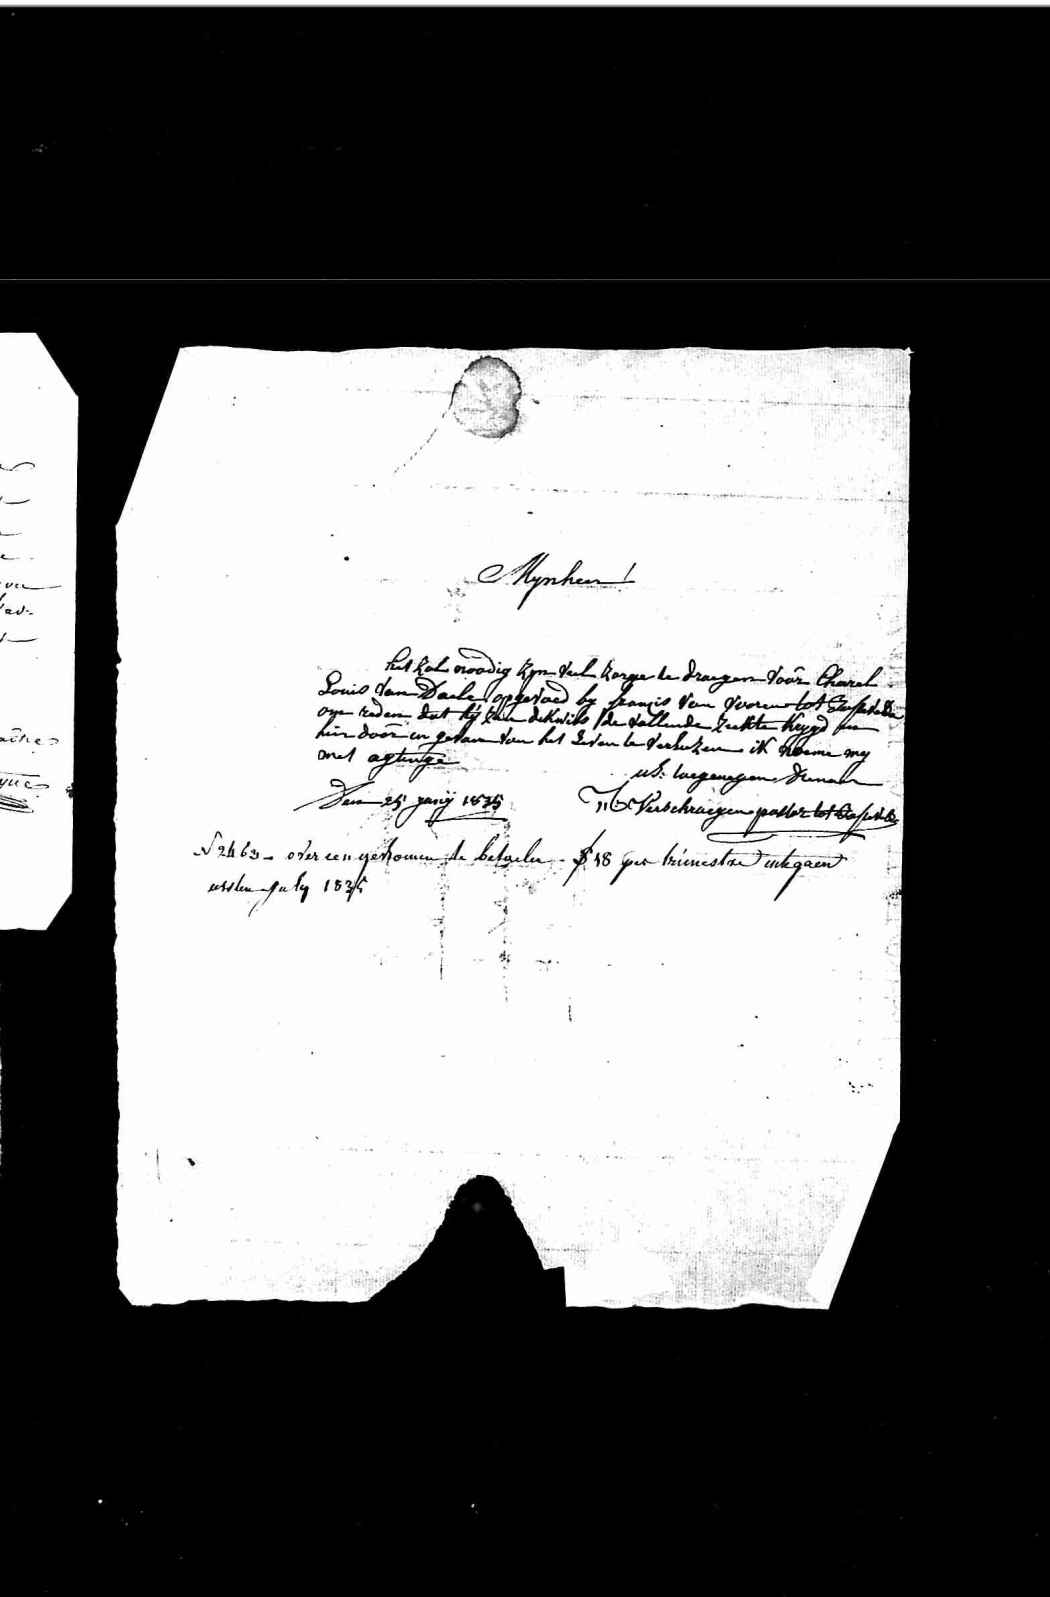 Mynheer!
het zal noodig zyn veel zorge te draegen voor Charel
Louis Van Daele opgevoed by françis Van Vooren tot
om reden dat hy zeer dikwils de vallende ziekte krygd en
hier door in gevaer van het Leven te verliezen ik noeme my
met agtinge
uE: toegenegen Dienaer
Den 25 junij 1835
Verschraegen pastor tot
N 2463 - over een gekomen te betaelen - 18 per trimestre integaen
july 1835